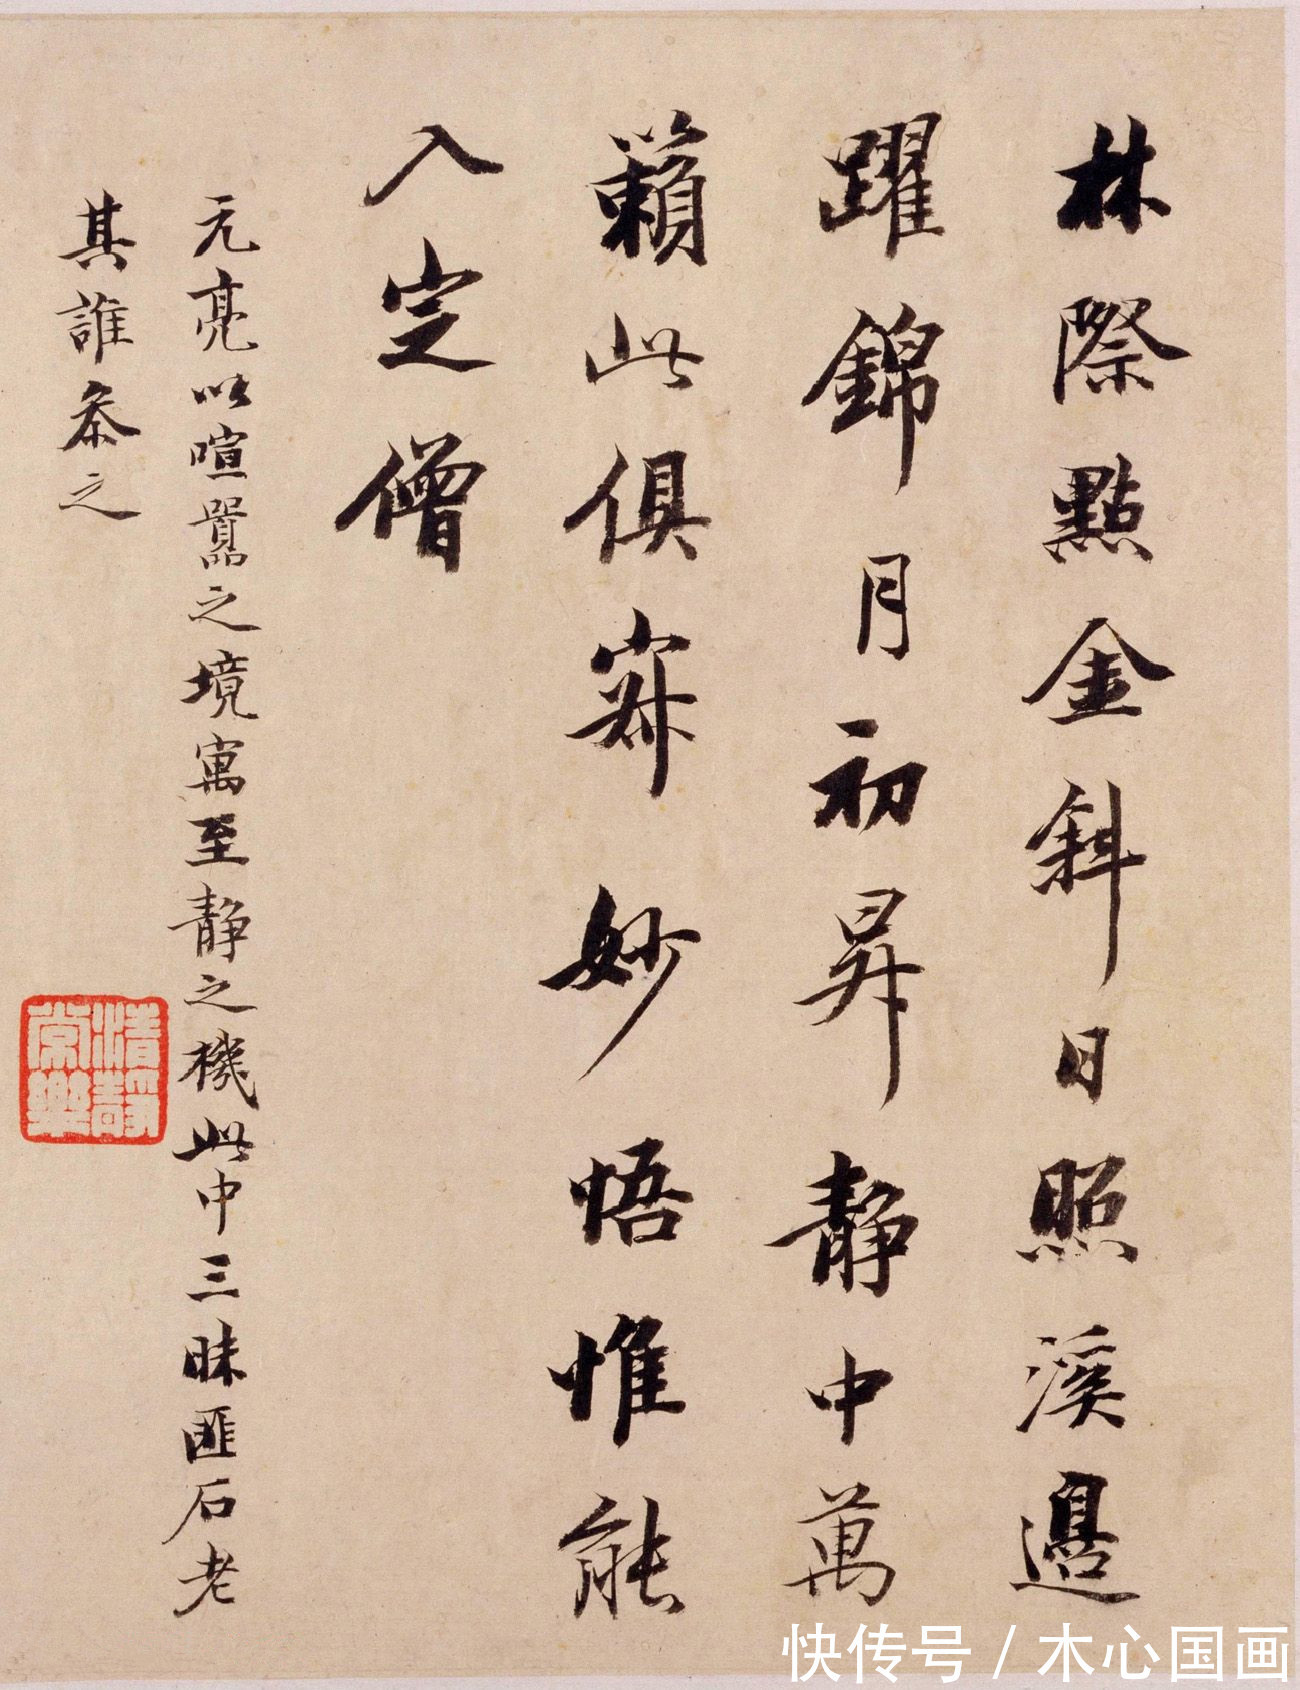 林際點金斜日照溪邊
躍錦月初昇靜中萬
籟此俱寂妙悟惟能
入定僧
元亮以喧嚣之境寓至靜之機此中三昧匪石老
其誰叅之
清靜
常樂
快传号 / 木心国画